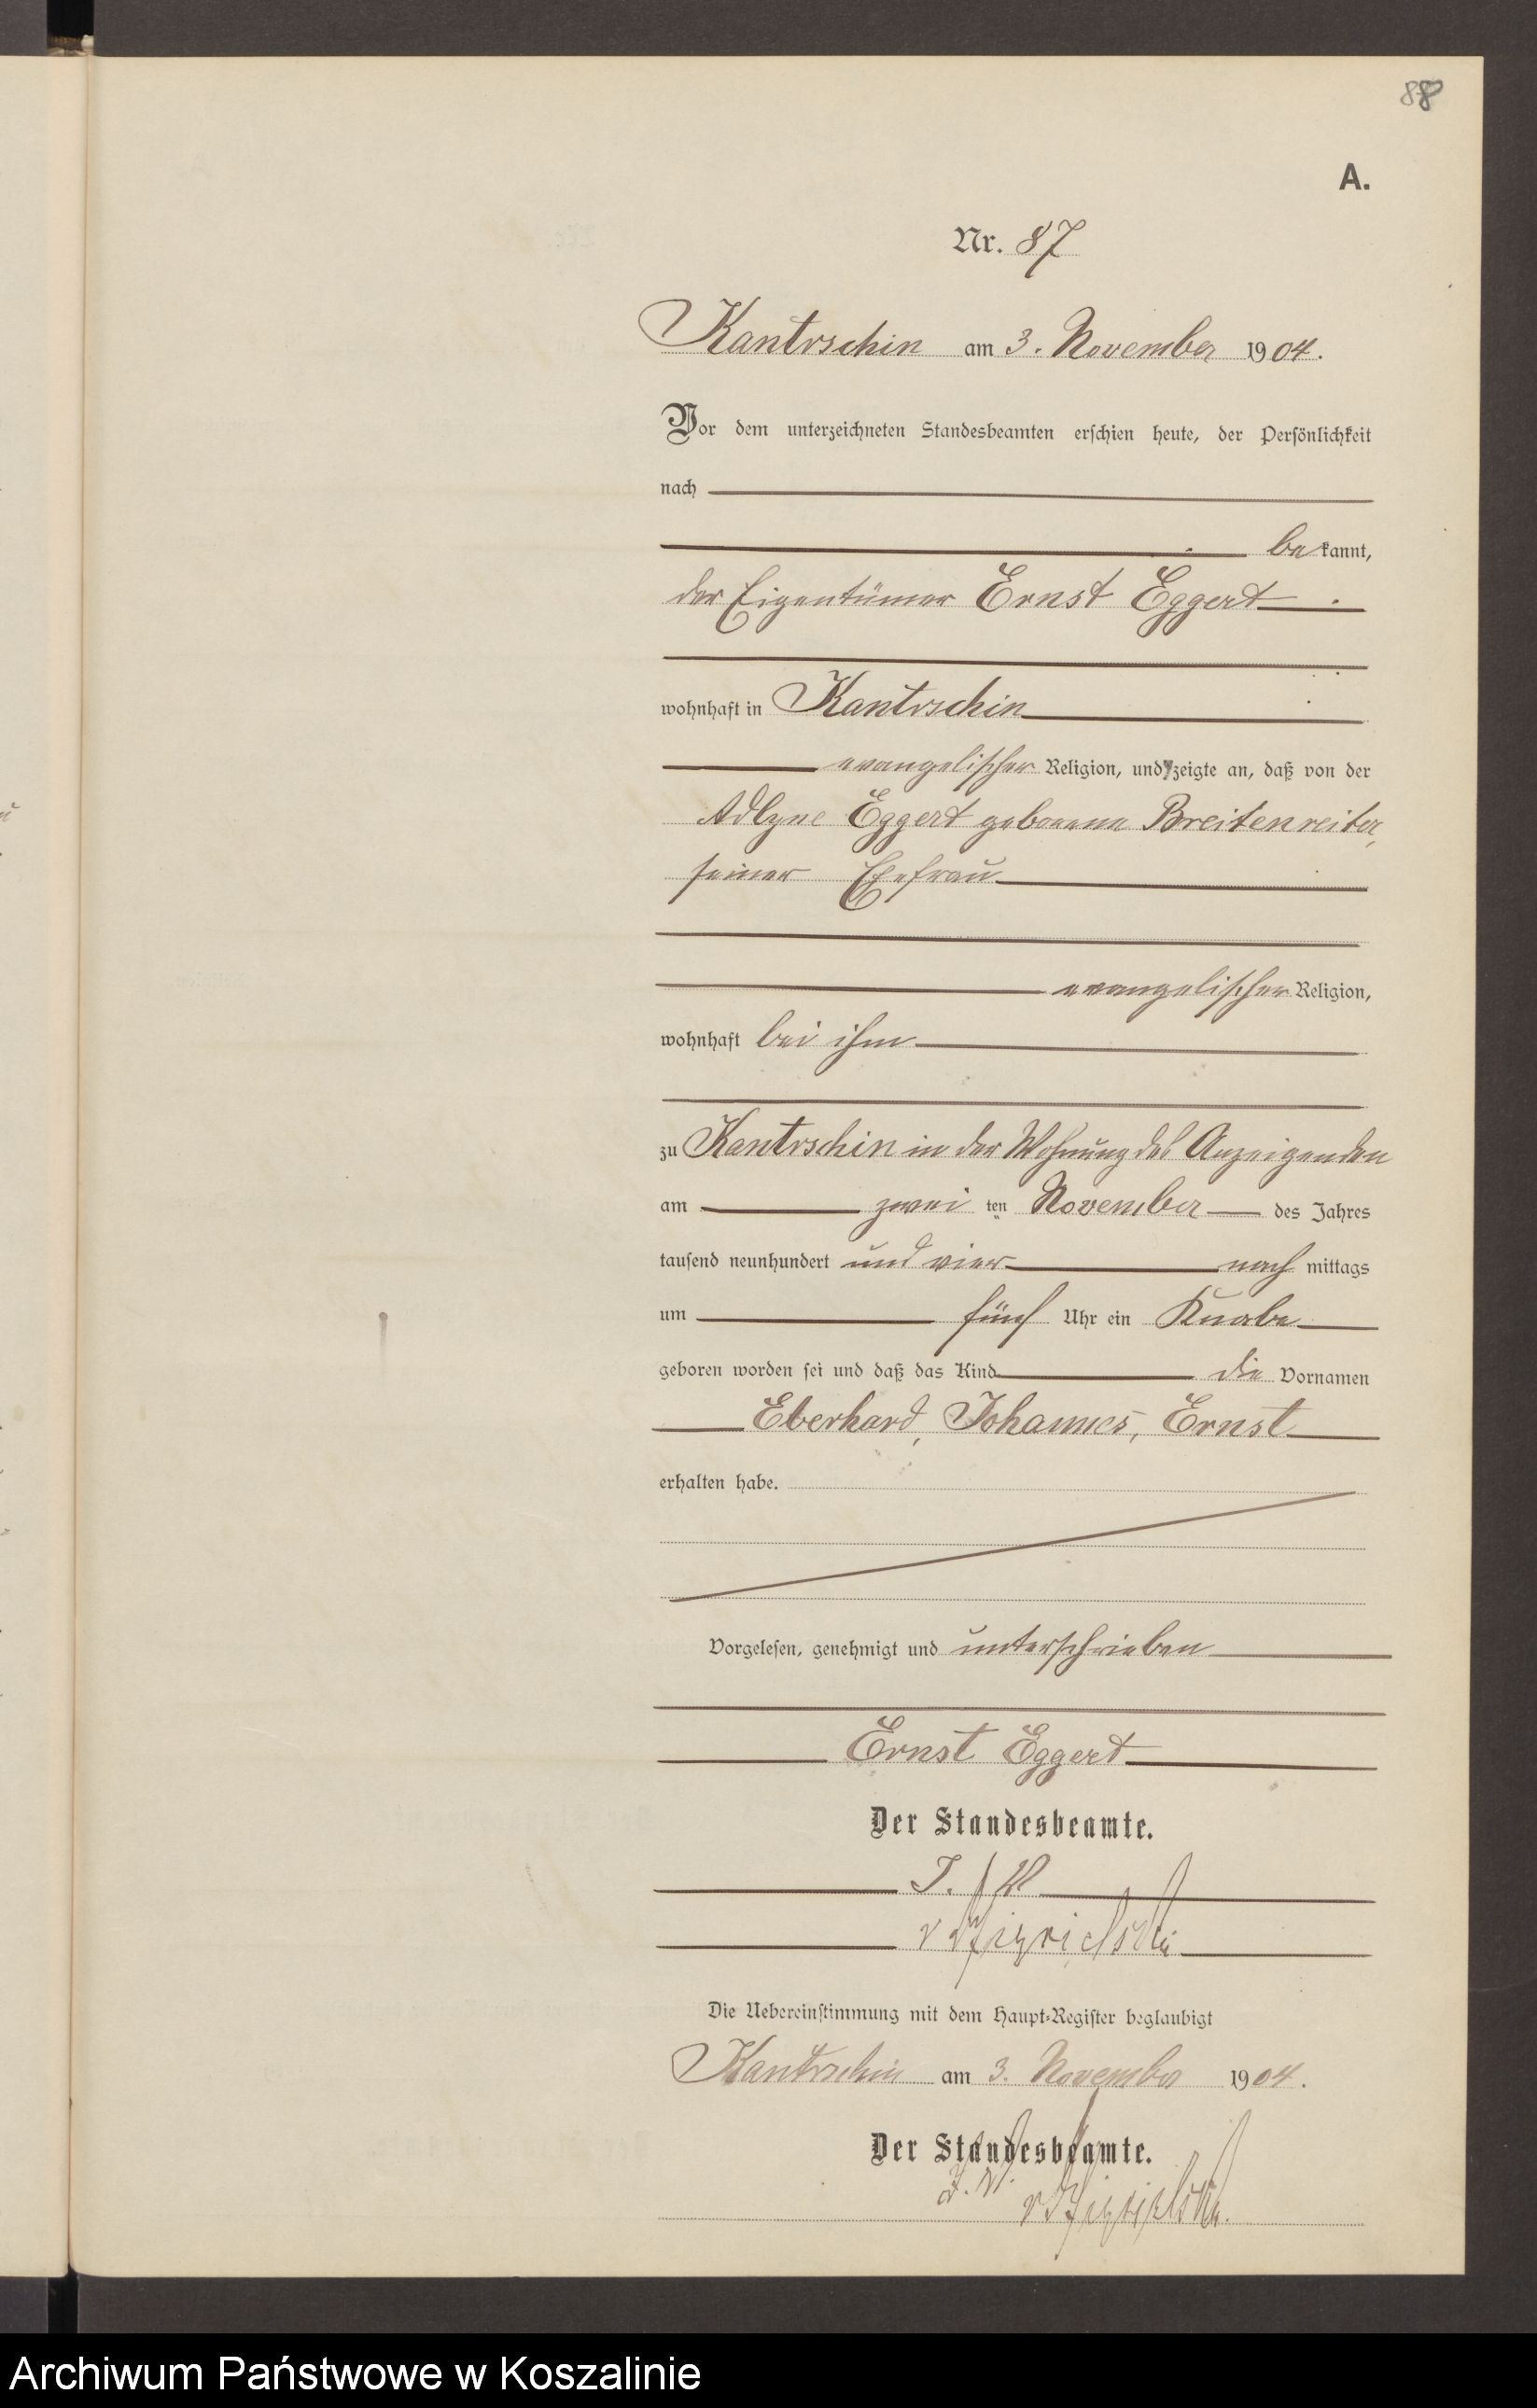 88
A.
Nr. 87
Kantrschin am 3. November 1904.
Vor dem unterzeichneten Standesbeamten erschien heute, der Persönlichkeit
nach
bekannt,
der Eigentümer Ernst Eggert
wohnhaft in Kantrschin
evangelischer Religion, und zeigte an, daß von der
Eggert geborene Breitenreiter,
seiner Ehefrau
evangelischer Religion,
wohnhaft bei ihm
zu Kantrschin in der Wohnung des Anzeigenden
am zweiten November des Jahres
tausend neunhundert und vier nach mittags
um fünf Uhr ein Knabe
geboren worden sei und daß das Kind die Vornamen
Eberhard, Johannes, Ernst
erhalten habe.
Vorgelesen, genehmigt und unterschrieben
Ernst Eggert
Der Standesbeamte.
J. V.
Die Uebereinstimmung mit dem Haupt-Register beglaubigt
Kantrschin am 3. November 1904.
Der Standesbeamte.
J. V.
Archiwum Państwowe w Koszalinie